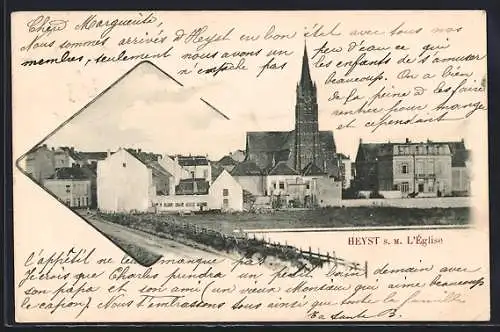 Cher Marguerite,
Nous sommes arrivés d'Heyst en bon état avec tous nos
membres, seulement nous avons un peu d'eau ce qui
n'empêche pas les enfants de s'amuser
beaucoup. On a bien
de la peine de les faire
rentrer pour manger
et cependant
HEYST S. M. L'Église
l'appétit ne manque pas
Je crois que prendra un bain demain avec
son papa et son ami (un vieux Monsieur qui aime beaucoup
le capon). Nous t'embrassons tous ainsi que toute la famille
B.